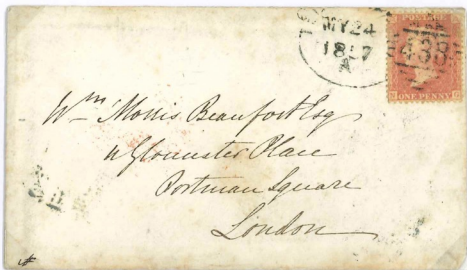 MY 24
1857
A
438
ONE PENNY
Wm Morris Beaufort Esq
11 Gloucester Place
Portman Square
London